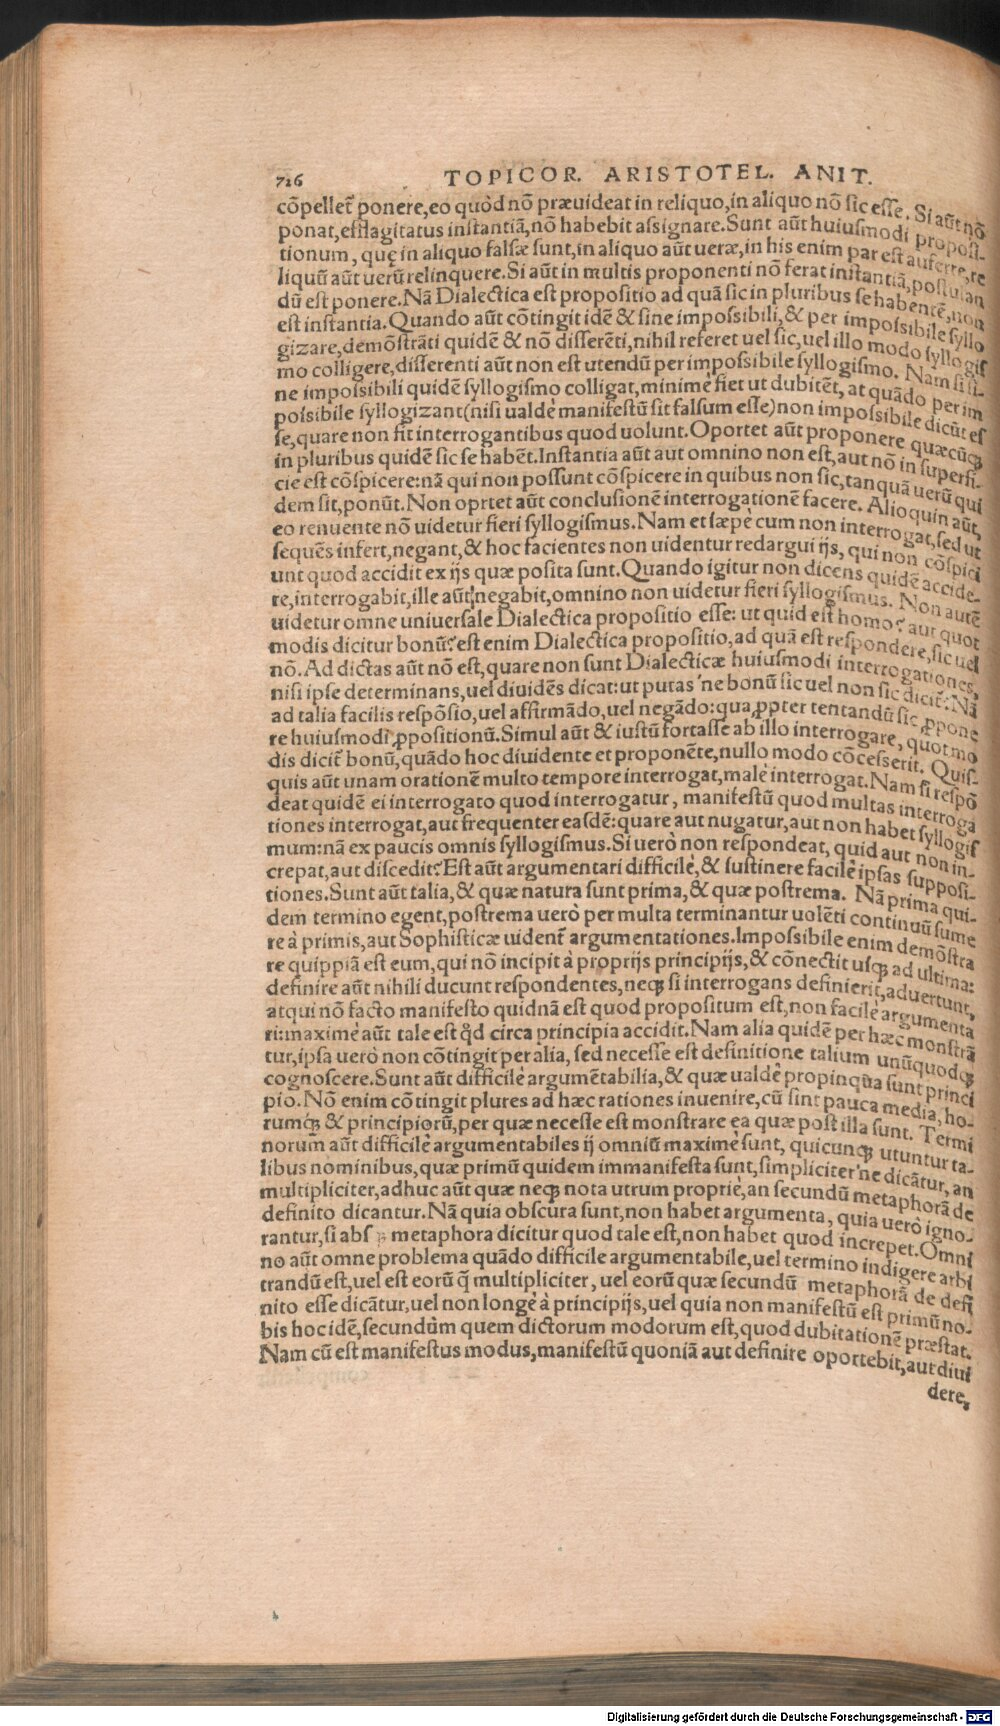 726 TOPICOR. ARISTOTEL. ANIT.
cõpellet̃ ponere, eo quòd nõ præuideat in reliquo, in aliquo nõ sic esse. Si aũt nõ
ponat, efflagitatus instantiã, nõ habebit assignare. Sunt aũt huiusmodi proposi-
tionum, quę in aliquo falsæ sunt, in aliquo aũt ueræ, in his enim par est auferre, re
liquũ aũt uerũ relinquere. Si aũt in multis proponenti nõ ferat instantiã, postulan
dũ est ponere. Nã Dialectica est propositio ad quã sic in pluribus se habentẽ, non
est instantia. Quando aũt cõtingit idẽ & sine impossibili, & per impossibile syllo
gizare, demõstrãti quidẽ & nõ disserẽti, nihil refert uel sic, uel illo modo syllogis
mo colligere, disserenti aũt non est utendũ per impossibile syllogismo. Nam si si-
ne impossibili quidẽ syllogismo colligat, minimè fiet ut dubitẽt, at quãdo per im
possibile syllogizant (nisi ualdè manifestũ sit falsum esse) non impossibile dicũt es
se, quare non fit interrogantibus quod uolunt. Oportet aũt proponere quæcũq;
in pluribus quidẽ sic se habẽt. Instantia aũt aut omnino non est, aut nõ in superfi-
cie est cõspicere: nã qui non possunt cõspicere in quibus non sic, tanquã uerũ qui
dem sit, ponũt. Non oprtet aũt conclusionẽ interrogationẽ facere. Alioquin aũt,
eo renuente nõ uidetur fieri syllogismus. Nam et sæpè cum non interrogat, sed ut
sequẽs infert, negant, & hoc facientes non uidentur redargui ijs, qui non cõspici
unt quod accidit ex ijs quæ posita sunt. Quando igitur non dicens quidẽ accide-
re, interrogabit, ille aũt negabit, omnino non uidetur fieri syllogismus. Non autẽ
uidetur omne uniuersale Dialectica propositio esse: ut quid est homo? aut quot
modis dicitur bonũ? est enim Dialectica propositio, ad quã est respondere, sic uel
nõ. Ad dictas aũt nõ est, quare non sunt Dialecticæ huiusmodi interrogationes,
nisi ipse determinans, uel diuidẽs dicat: ut putas ne bonũ sic uel non sic dicit̃: Nã
ad talia facilis respõsio, uel affirmãdo, uel negãdo: qua ꝓpter tentandũ sic ꝓpone
re huiusmodi ꝓpositionũ. Simul aũt & iustũ fortasse ab illo interrogare, quot mo
dis dicit̃ bonũ, quãdo hoc diuidente et proponẽte, nullo modo cõcesserit. Quis-
quis aũt unam orationẽ multo tempore interrogat, malè interrogat. Nam si respõ
deat quidẽ ei interrogato quod interrogatur, manifestũ quod multas interroga
tiones interrogat, aut frequenter easdẽ: quare aut nugatur, aut non habet syllogis
mum: nã ex paucis omnis syllogismus. Si uerò non respondeat, quid aut non in-
crepat, aut discedit? Est aũt argumentari difficilè, & sustinere facilè ipsas supposi-
tiones. Sunt aũt talia, & quæ natura sunt prima, & quæ postrema. Nã prima qui-
dem termino egent, postrema uerò per multa terminantur uolẽti continuũ sume
re à primis, aut Sophisticæ uident̃ argumentationes. Impossibile enim demõstra
re quippiã est eum, qui nõ incipit à proprijs principijs, & cõnectit usq; ad ultima:
definire aũt nihili ducunt respondentes, neq; si interrogans definierit, aduertunt,
atqui nõ facto manifesto quidnã est quod propositum est, non facilè argumenta
ri: maximè aũt tale est q̃d circa principia accidit. Nam alia quidẽ per hæc monstrã
tur, ipsa uerò non cõtingit per alia, sed necesse est definitione talium unũquodq;
cognoscere. Sunt aũt difficilè argumẽtabilia, & quæ ualdè propinqua sunt princi
pio. Nõ enim cõtingit plures ad hæc rationes inuenire, cũ sint pauca media, ho-
rumq; & principiorũ, per quæ necesse est monstrare ea quæ post illa sunt. Termi
norum̃ aũt difficilè argumentabiles ij omniũ maximè sunt, quicunq; utuntur ta-
libus nominibus, quæ primũ quidem immanifesta sunt, simpliciter ne dicãtur, an
multipliciter, adhuc aũt quæ neq; nota utrum propriè, an secundũ metaphorã de
definito dicantur. Nã quia obscura sunt, non habet argumenta, quia uerò igno-
rantur, si abs metaphora dicitur quod tale est, non habet quod increpet. Omni
no aũt omne problema quãdo difficile argumentabile, uel termino indigere arbi
trandũ est, uel est eorũ q̃ multipliciter, uel eorũ quæ secundũ metaphorã de defi
nito esse dicãtur, uel non longè à principijs, uel quia non manifestũ est primũ no-
bis hoc idẽ, secundùm quem dictorum modorum est, quod dubitationẽ præstat.
Nam cũ est manifestus modus, manifestũ quoniã aut definire oportebit, aut diui
dere,
Digitalisierung gefördert durch die Deutsche Forschungsgemeinschaft - DFG